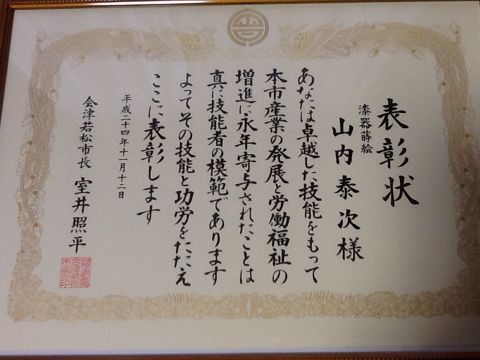 表彰状
漆器蒔絵
山内泰次様
あなたは卓越した技能をもって
本市産業の発展と労働福祉の
増進に永年寄与されたことは
真に技能者の模範であります
よってその技能と功労をたたえ
ここに表彰します
平成二十四年十一月十二日
会津若松市長 室井照平